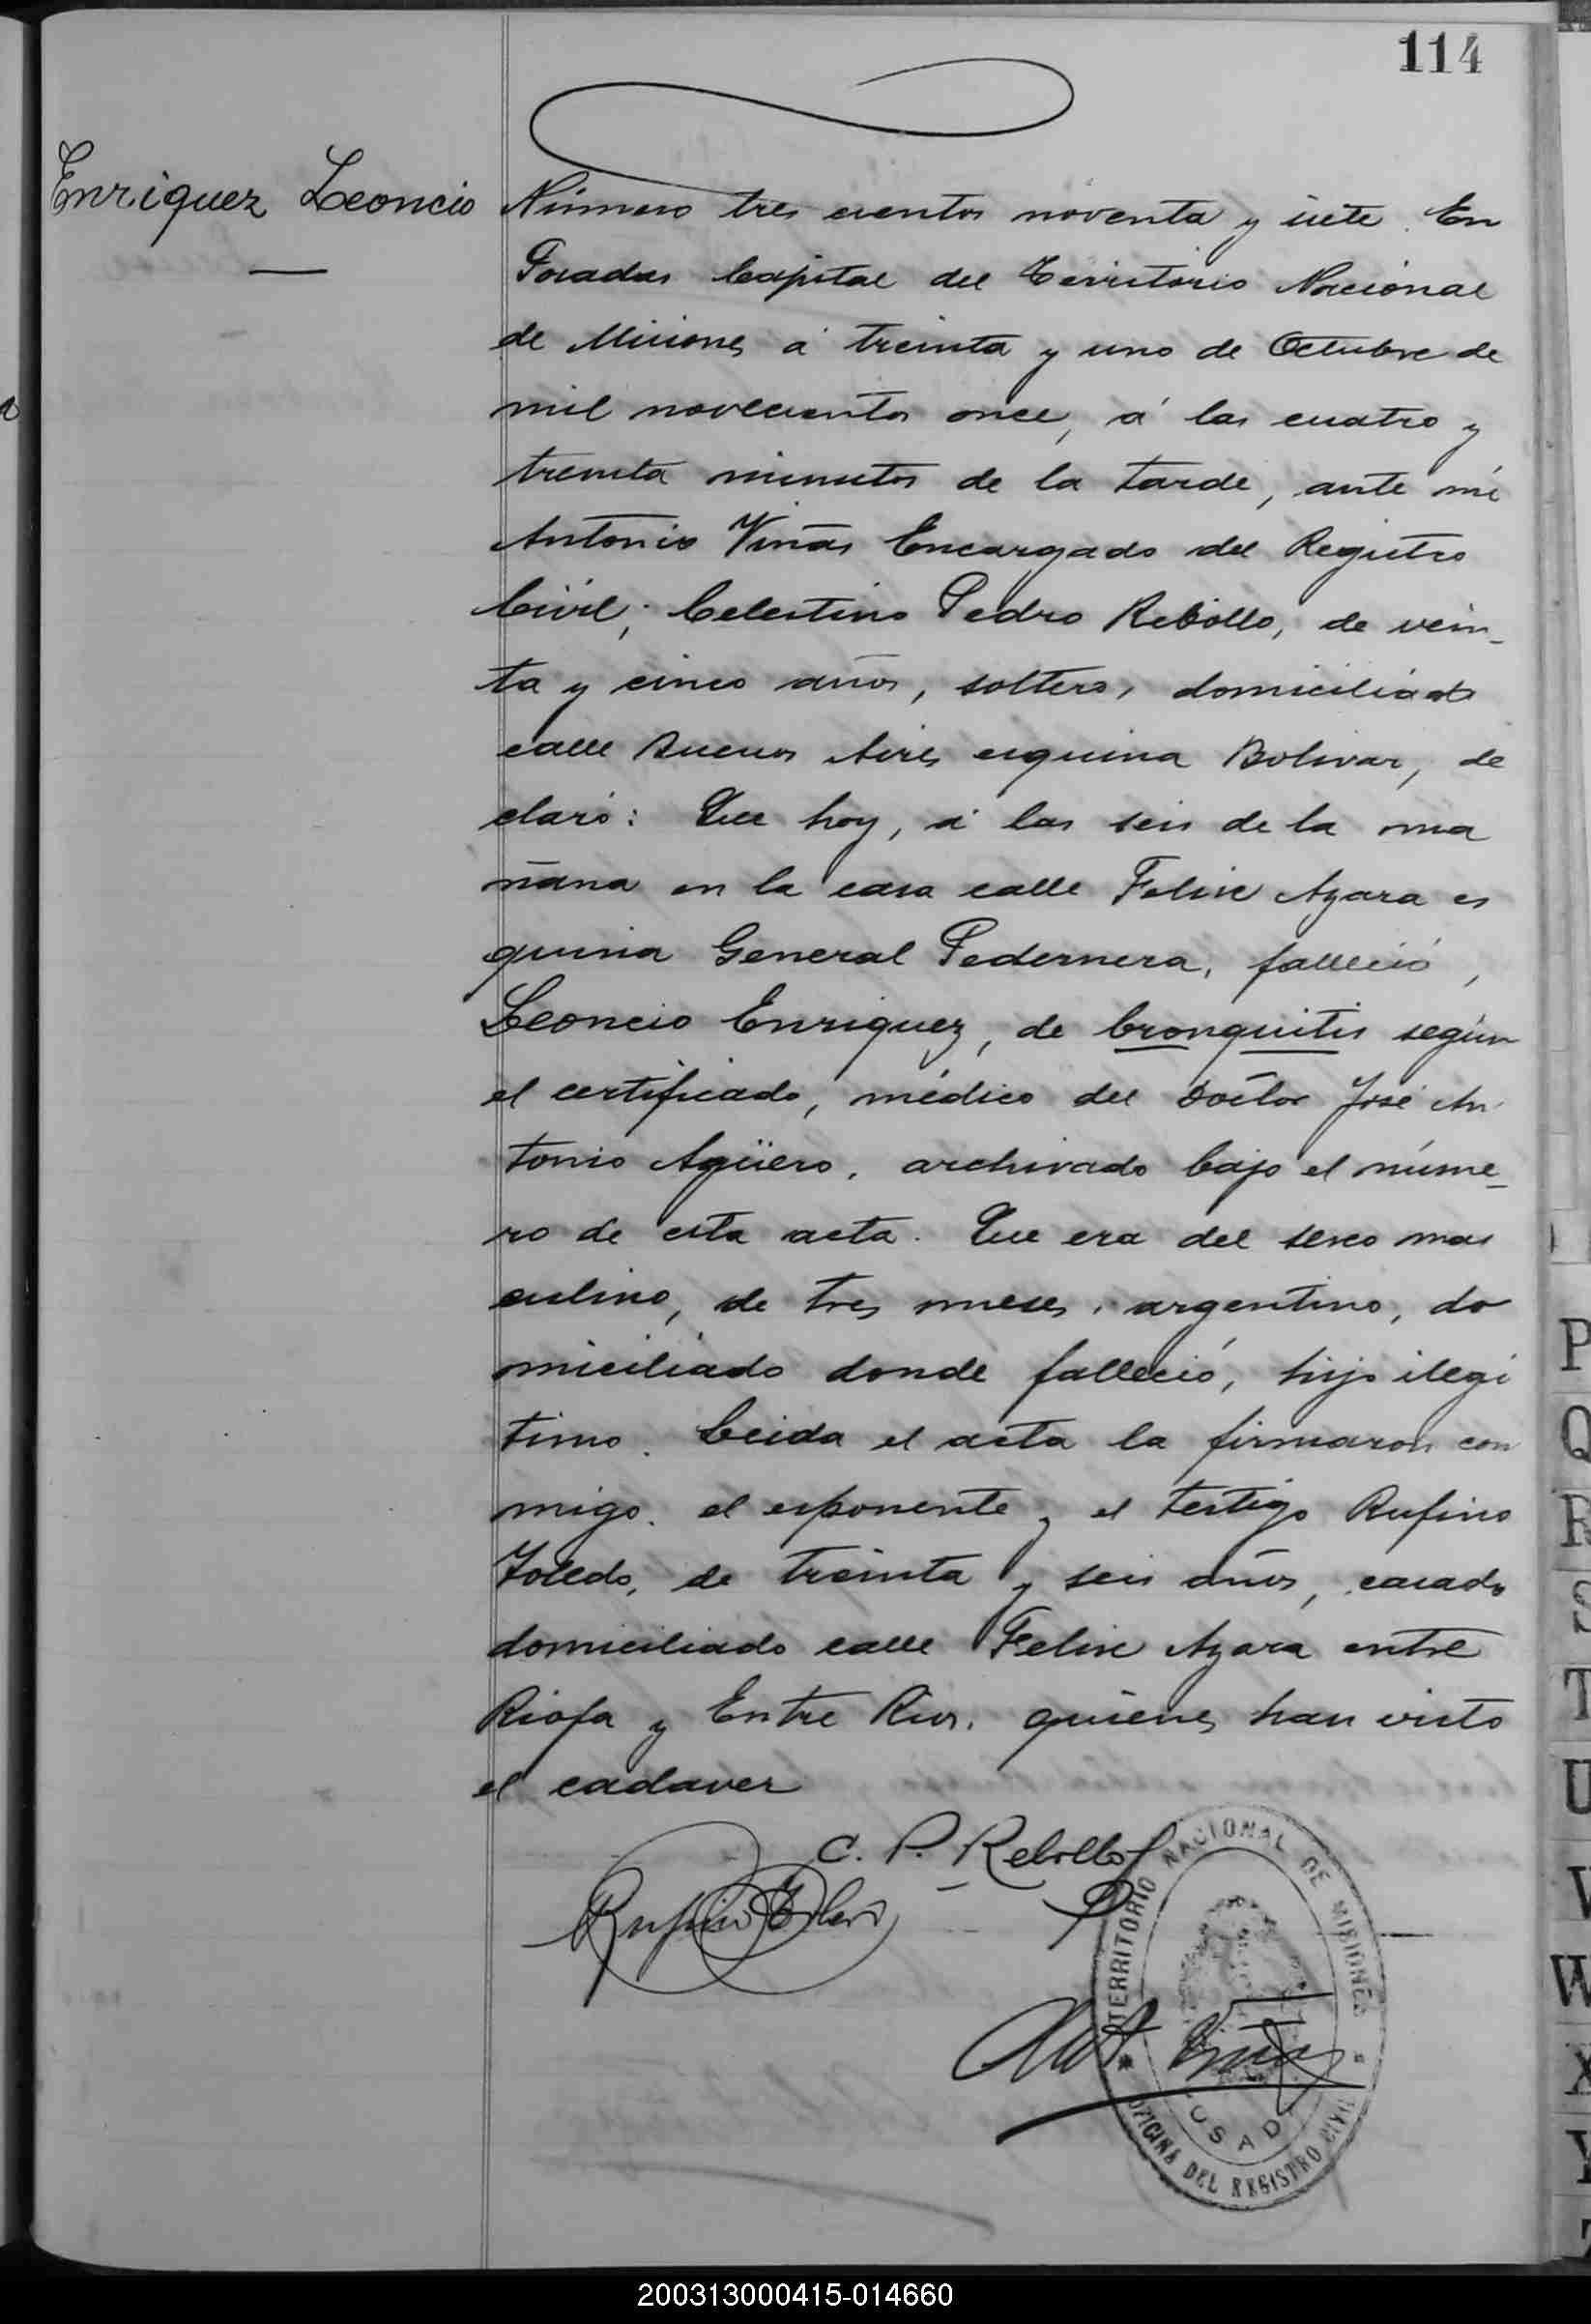 114
Enriquez Leoncio
Número tres cientos noventa y siete. En
Posadas Capital del Territorio Nacional
de Misiones á treinta y uno de Octubre de
mil novecientos once, á las cuatro y
treinta minutos de la tarde, ante mí
Antonio Viñas Encargado del Registro
Civil; Celestino Pedro Rebollo, de vein-
ta y cinco años, soltero, domiciliado
calle Buenos Aires esquina Bolivar, de
claró: Que hoy, á las seis de la ma
ñana en la casa calle Felix Azara es
quina General Pedernera, falleció,
Leoncio Enriquez, de bronquitis según
el certificado, médico del Doctor José An
tonio Agüero, archivado bajo el núme-
ro de esta acta. Que era del sexo mas
culino, de tres meses, argentino, do
miciliado donde falleció, hijo ilegi
timo. Leida el acta la firmaron con
migo. el esponente y el testigo Rufino
Toledo, de treinta y seis años, casado
domiciliado calle Felix Azara entre
Rioja y Entre Rios, quienes han visto
el cadaver
C. P. Rebollo
Rufino Toledo
TERRITORIO NACIONAL DE MISIONES
Ant Viñas
OFICINA DEL REGISTRO CIVIL
P
Q
R
S
T
U
V
W
X
Y
Z
200313000415-014660